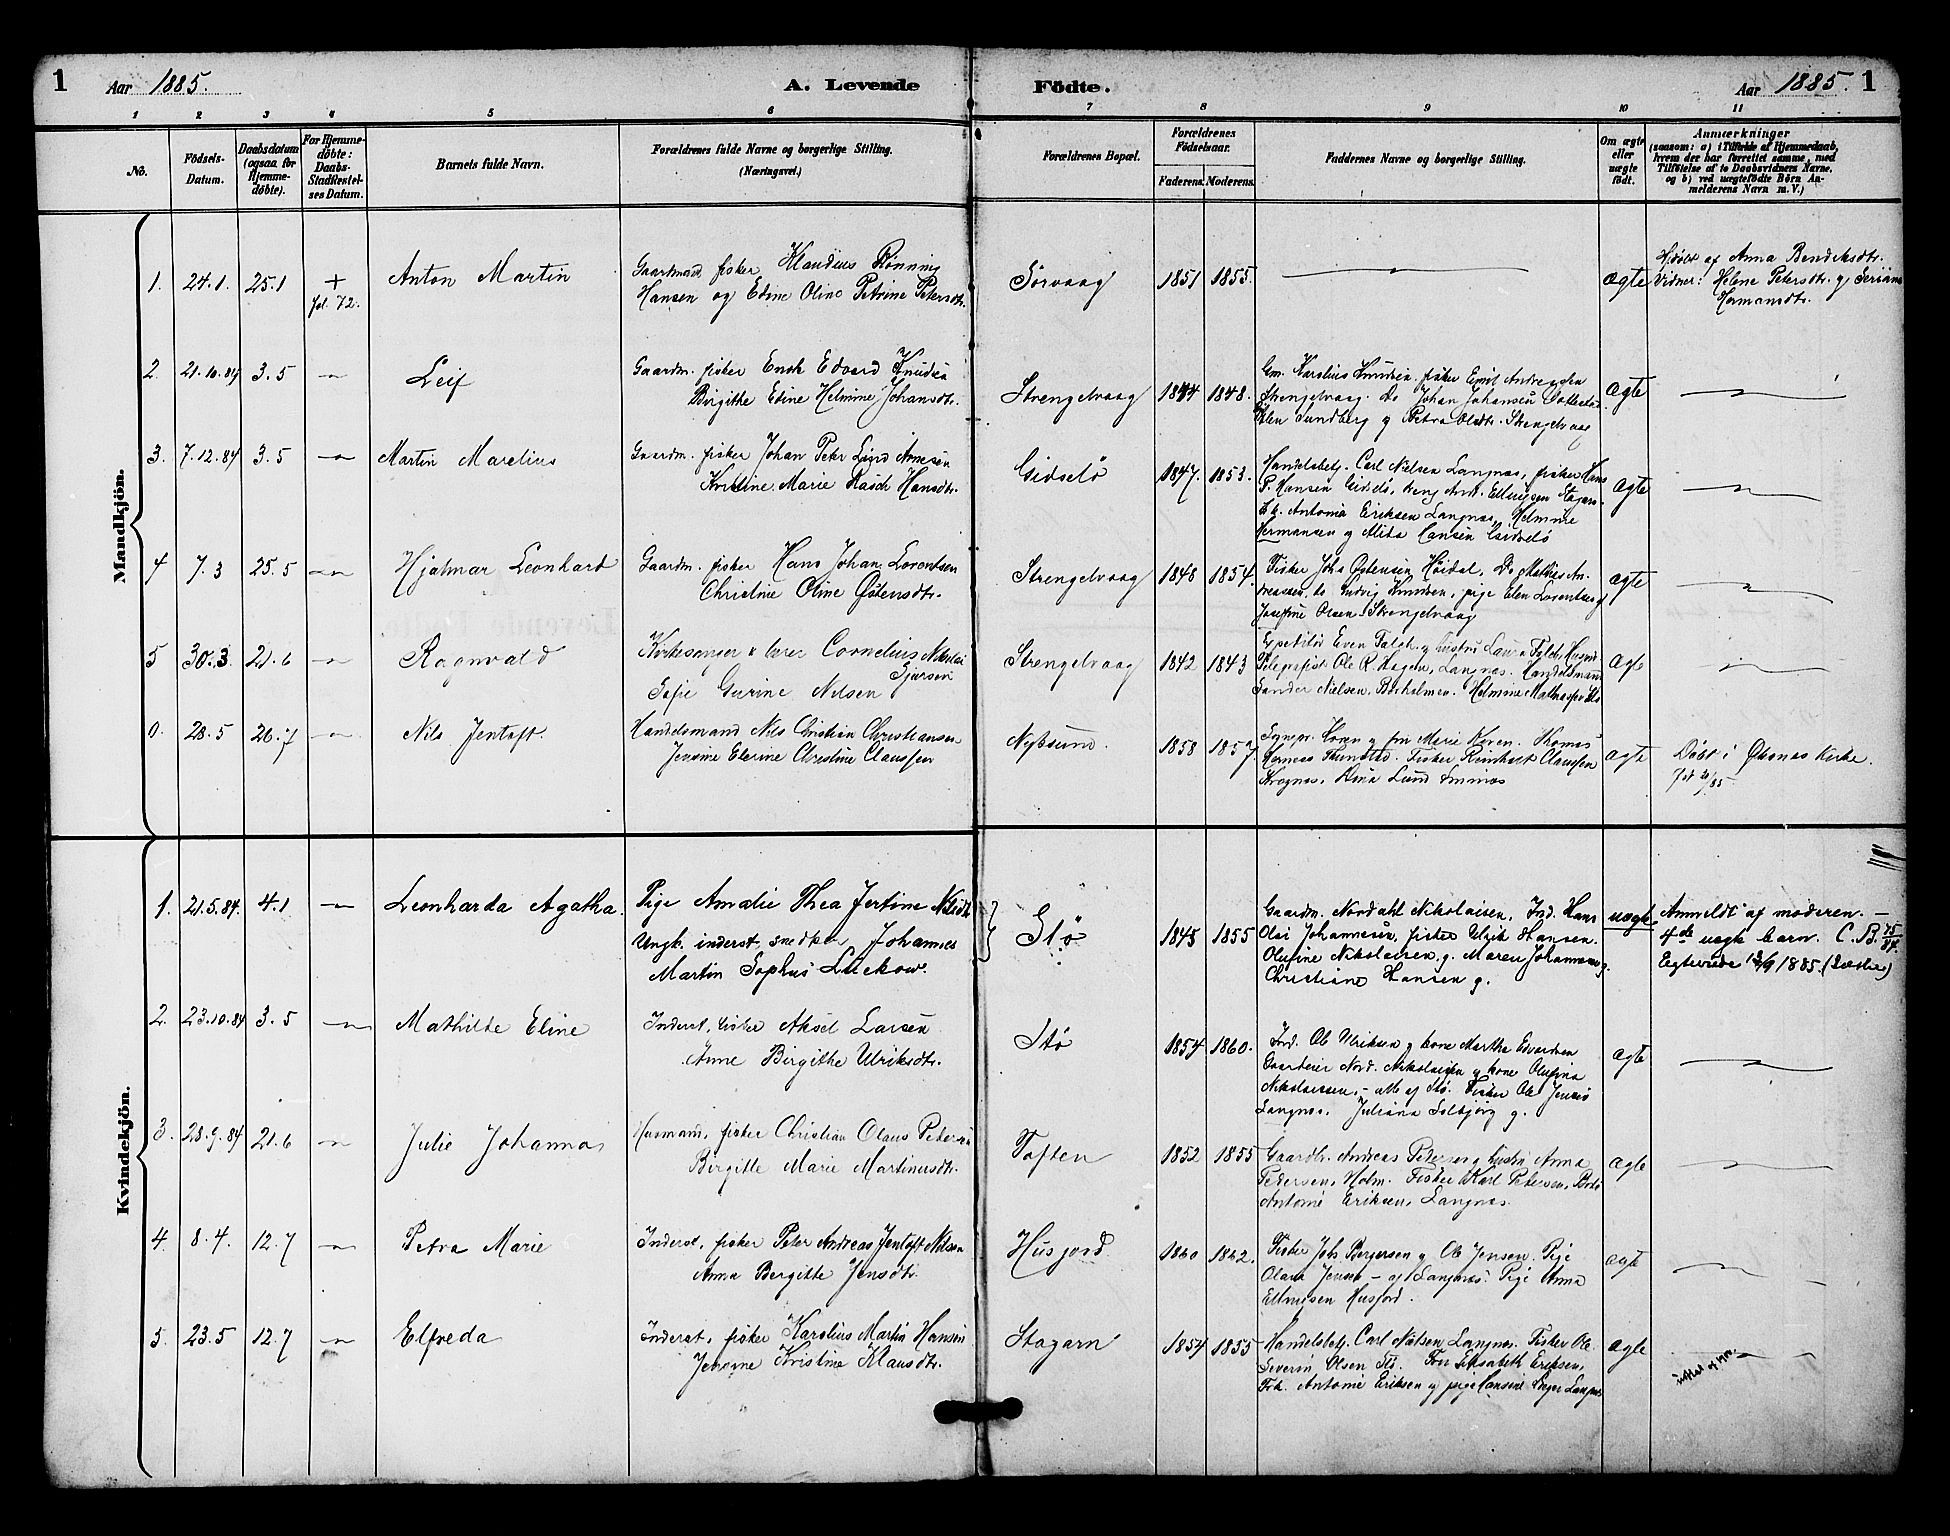 1 Aar 1885. A. Levende Födte. Aar 1885. 1
1 2 3 4 5 6 7 8 9 10 11
No.
Födsels-
Datum.
Daabsdatum
(ogsaa for
Hjemme-
döbte).
For Hjemme-
döbte:
Daabs-
Stadfæstel-
ses Datum.
Barnets fulde Navn.
Forældrenes fulde Navne og borgerlige Stilling.
(Næringsvei.)
Forældrenes Bopæl.
Forældrenes
Födselsaar.
Faderens. Moderens.
Faddernes Navne og borgerlige Stilling.
Om ægte
eller
uægte
födt.
Anmærkninger
(saasom: a) i Tilfælde af Hjemmedaab,
hvem der har forrettet samme, med
Tilföielse af to Daabsvidners Navne,
og b) ved uægtefödte Börn An-
melderens Navn m. V.)
Mandkjön.
1. 24.1. 25.1 +
fol. 72.
Anton Martin
Gaardmand fisker Klaudius Rønning
Hansen og Edine Oline Petrine Petersdtr.
Sørvaag 1851 1855. ægte
Hjdøbt af Anna Bendiksdtr.
Vidner: Helene Petersdtr. g
Hermansdtr.
2. 21.10.84 3.5 Leif
Gaardm. fisker Enok Edvard Knudsen
Birgithe Edine Helmine Johansdtr.
Strengelvaag 1844 1848.
Gm. Karolius Knudsen, fisker Emil Andreassen
Strengelvaag. Do Johan Johansen
Elen Sundberg g Petra Olsdtr. Strengelvaag
ægte
3. 7.12.84 3.5 Martin Marelius
Gaardm. fisker Johan Peter Lund Arnesen
Kristine Marie Rasch Hansdtr.
Gidselø 1847. 1853.
Handelsbetj. Carl Nielsen Langnæs, fisker Hans
P. Hansen Gidslø, dreng Andr. Ellingsen Stagarn
Antonie Eriksen Langnæs, Helmine
Hermansen g Alida Hansen Gidslø
ægte
4 7.3 25.5 Hjalmar Leonhard
Gaardm. fisker Hans Johan Lorentsen
Christine Oline Østensdtr.
Strengelvaag 1848 1854.
Fisker Johs Østensen Høidal, Do Mathias An-
dreassen, do Ludvig Knudsen, pige Elen Lorentsen g
Josefine Olsen Strengelvaag
ægte
5 30.3. 21.6 Ragnvald
Kirkesanger & lærer Cornelius Nikolai
Sjursen
Sofie Gurine Nilsen
Strengelvaag 1842 1843
Expeditør Even Falch g hustru Laura Falch,
Telegrafist Ole R. Hagen, Langnæs. Handelsmand
Sander Nielsen, Helmine Mathiassen Stø
ægte
28.5 26.7 Nils Jentoft.
Handelsmand Nils Christian Christiansen
Jensine Elerine Christine Claussen
Nyksund. 1858 1857.
Sognpr. Koren g fru Marie Koren. Thomas
Fisker Reinhart Claussen
Dina Lund
ægte
Døbt i Øksnæs Kirke.
Kvindekjön.
1. 21.5.84. 4.1 Leonharda Agatha.
Pige Amalie Thea Jertine Nilsdtr
Ungk. inderst, snedker Johannes
Martin Sophus Lückow.
Stø 1845 1855
Gaardm. Nordahl Nikolaisen, Ind. Hans
Olai Johannesen, fisker Ulrik Hansen.
Olufine Nikolaisen g. Maren Johannesen g.
Christiane Hansen g.
uægte
Anmeldt af moderen. —
4de uægte barn. C.B. 75/84.
Egteviede 13/9 1885.
2. 23.10.84 3.5 Mathilde Eline
Inderst, fisker Aksel Larsen
Anne Birgithe Ulriksdtr.
Stø 1854 1860.
Ind. Ole Ulriksen g kone Martha Edvardsen
Gaardeier Nord. Nikolaisen g kone Olufina
Nikolaissen, — alle af Stø. Fisker Ole Jensen
Langnæs. Juliana Solbjørg g.
ægte
3. 28.9.84 21.6 Julie Johanna
Husmand, fisker Christian Olaus Petersen
Birgitte Marie Martinusdtr.
Toften 1852 1855
Gaardbr. Andreas Petersen g hustru Anna
Pedersen, Holm. Fisker Karl Petersen,
Antonie Eriksen, Langnæs.
ægte
4. 8.4. 12.7 Petra Marie
Inderst, fisker Peter Andreas Jentoft Nilsen
Anna Bergitte Jensdtr.
Husjord. 1860 1862.
Fisker Joh. Bergersen g Ole Jensen. Pige
Olava Jensen — af Langnæs. Pige Anna
Ellingsen Husjord.
ægte
5. 23.5 12.7 Elfreda
Inderst, fisker Karolius Martin Hansen
Jensine Kristine Klausdtr.
Stagarn 1854 1855
Handelsbetj. Carl Nielsen Langnæs. Fisker Ole
Severin Olsen Stø. Fru Elisabeth Eriksen,
Frk. Antonie Eriksen g pige Hansine Langnæs
ægte